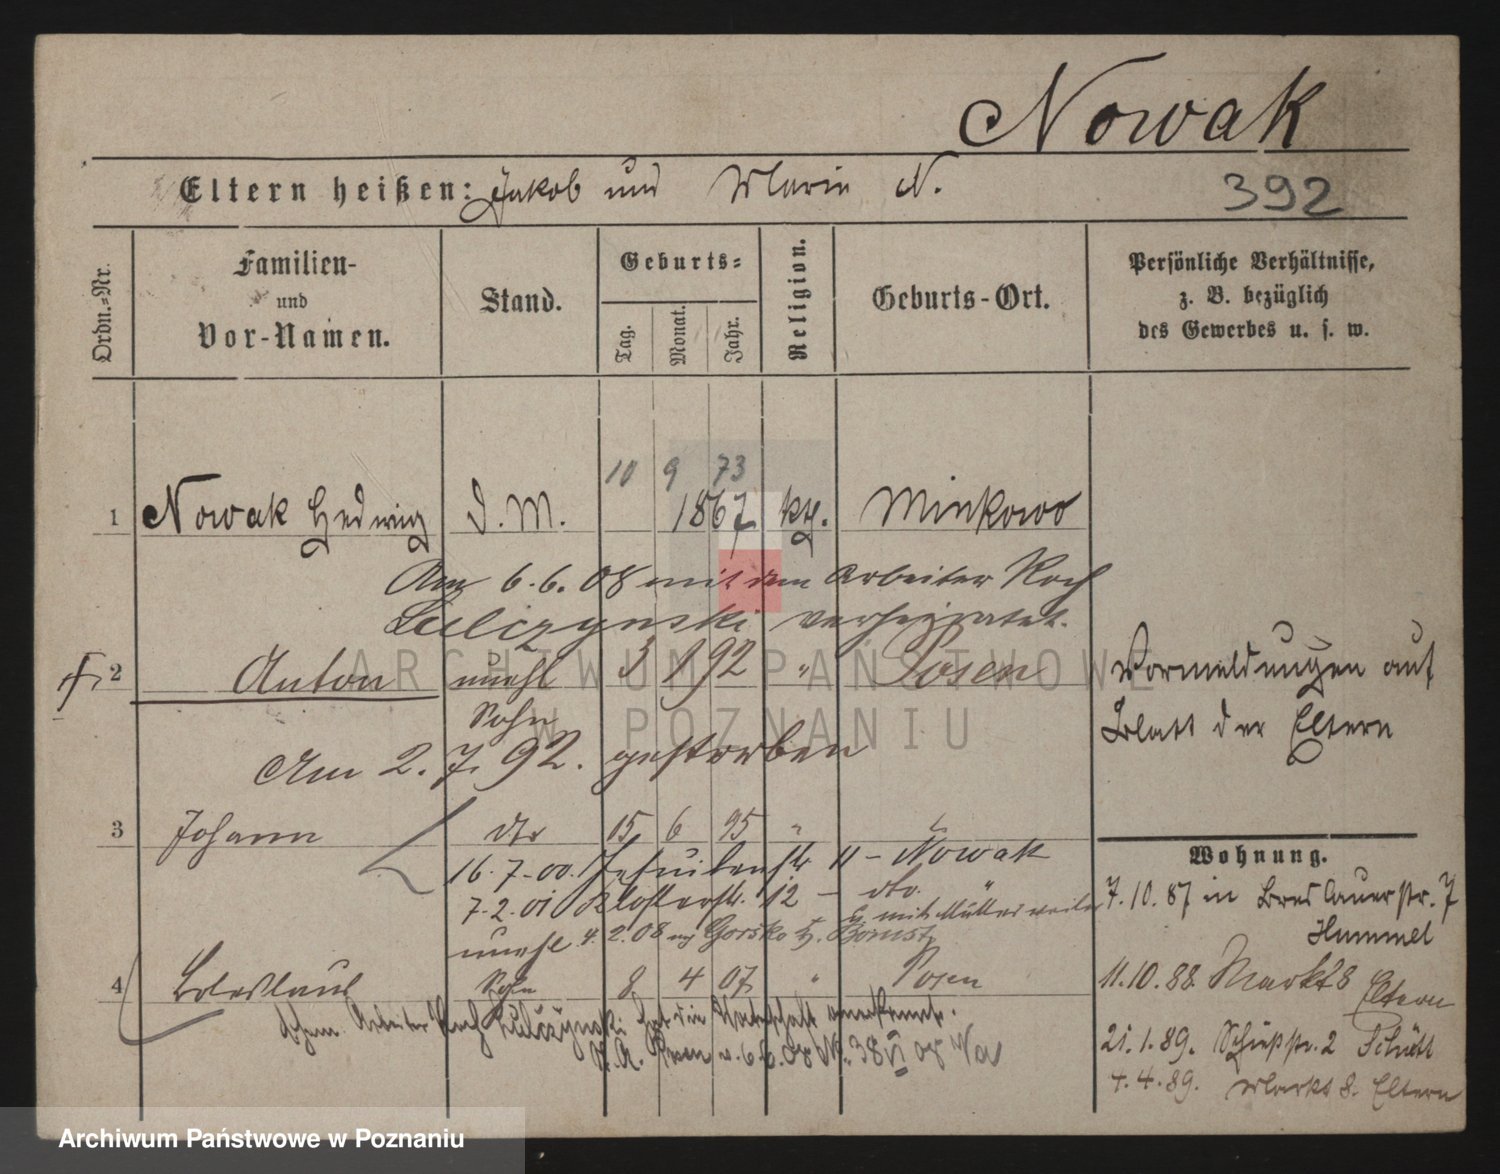 Nowak
Eltern heißen: Jakob und Marie N.
392
Ordn.=Nr.
Familien-
und
Vor-Namen.
Stand.
Geburts=
Tag.
Monat.
Jahr.
Religion.
Geburts-Ort.
Persönliche Verhältnisse,
z. B. bezüglich
des Gewerbes u. s. w.
10 9 73
1 Nowak Hedwig D. M. 1867 kth. Minkowo
Am 6.6.08 mit dem Arbeiter Roch
Lulczynski verheiratet.
2 Anton unehl 3 1 92 " Posen
Sohn
Am 2.7.92. gestorben
Vormeldungen auf
Blatt der Eltern
3 Johann dto 15 6 95 "
16.7.00. Jesuitenstr 11 - Nowak
7.2.01 Klosterstr. 12 - dto.
unehl 4.2.08 Gorsko
4 Boleslaus Sohn 8 4 07 " Posen
Arbeiter Roch Lulczynski hat die Vaterschaft anerkannt.
Wohnung.
7.10.87 in Breslauerstr. 7
Hummel
11.10.88. Markt 8 Eltern
21.1.89. Schützstr. 2
4.4.89. Markt 8. Eltern
ARCHIWUM PAŃSTWOWE
W POZNANIU
Archiwum Państwowe w Poznaniu